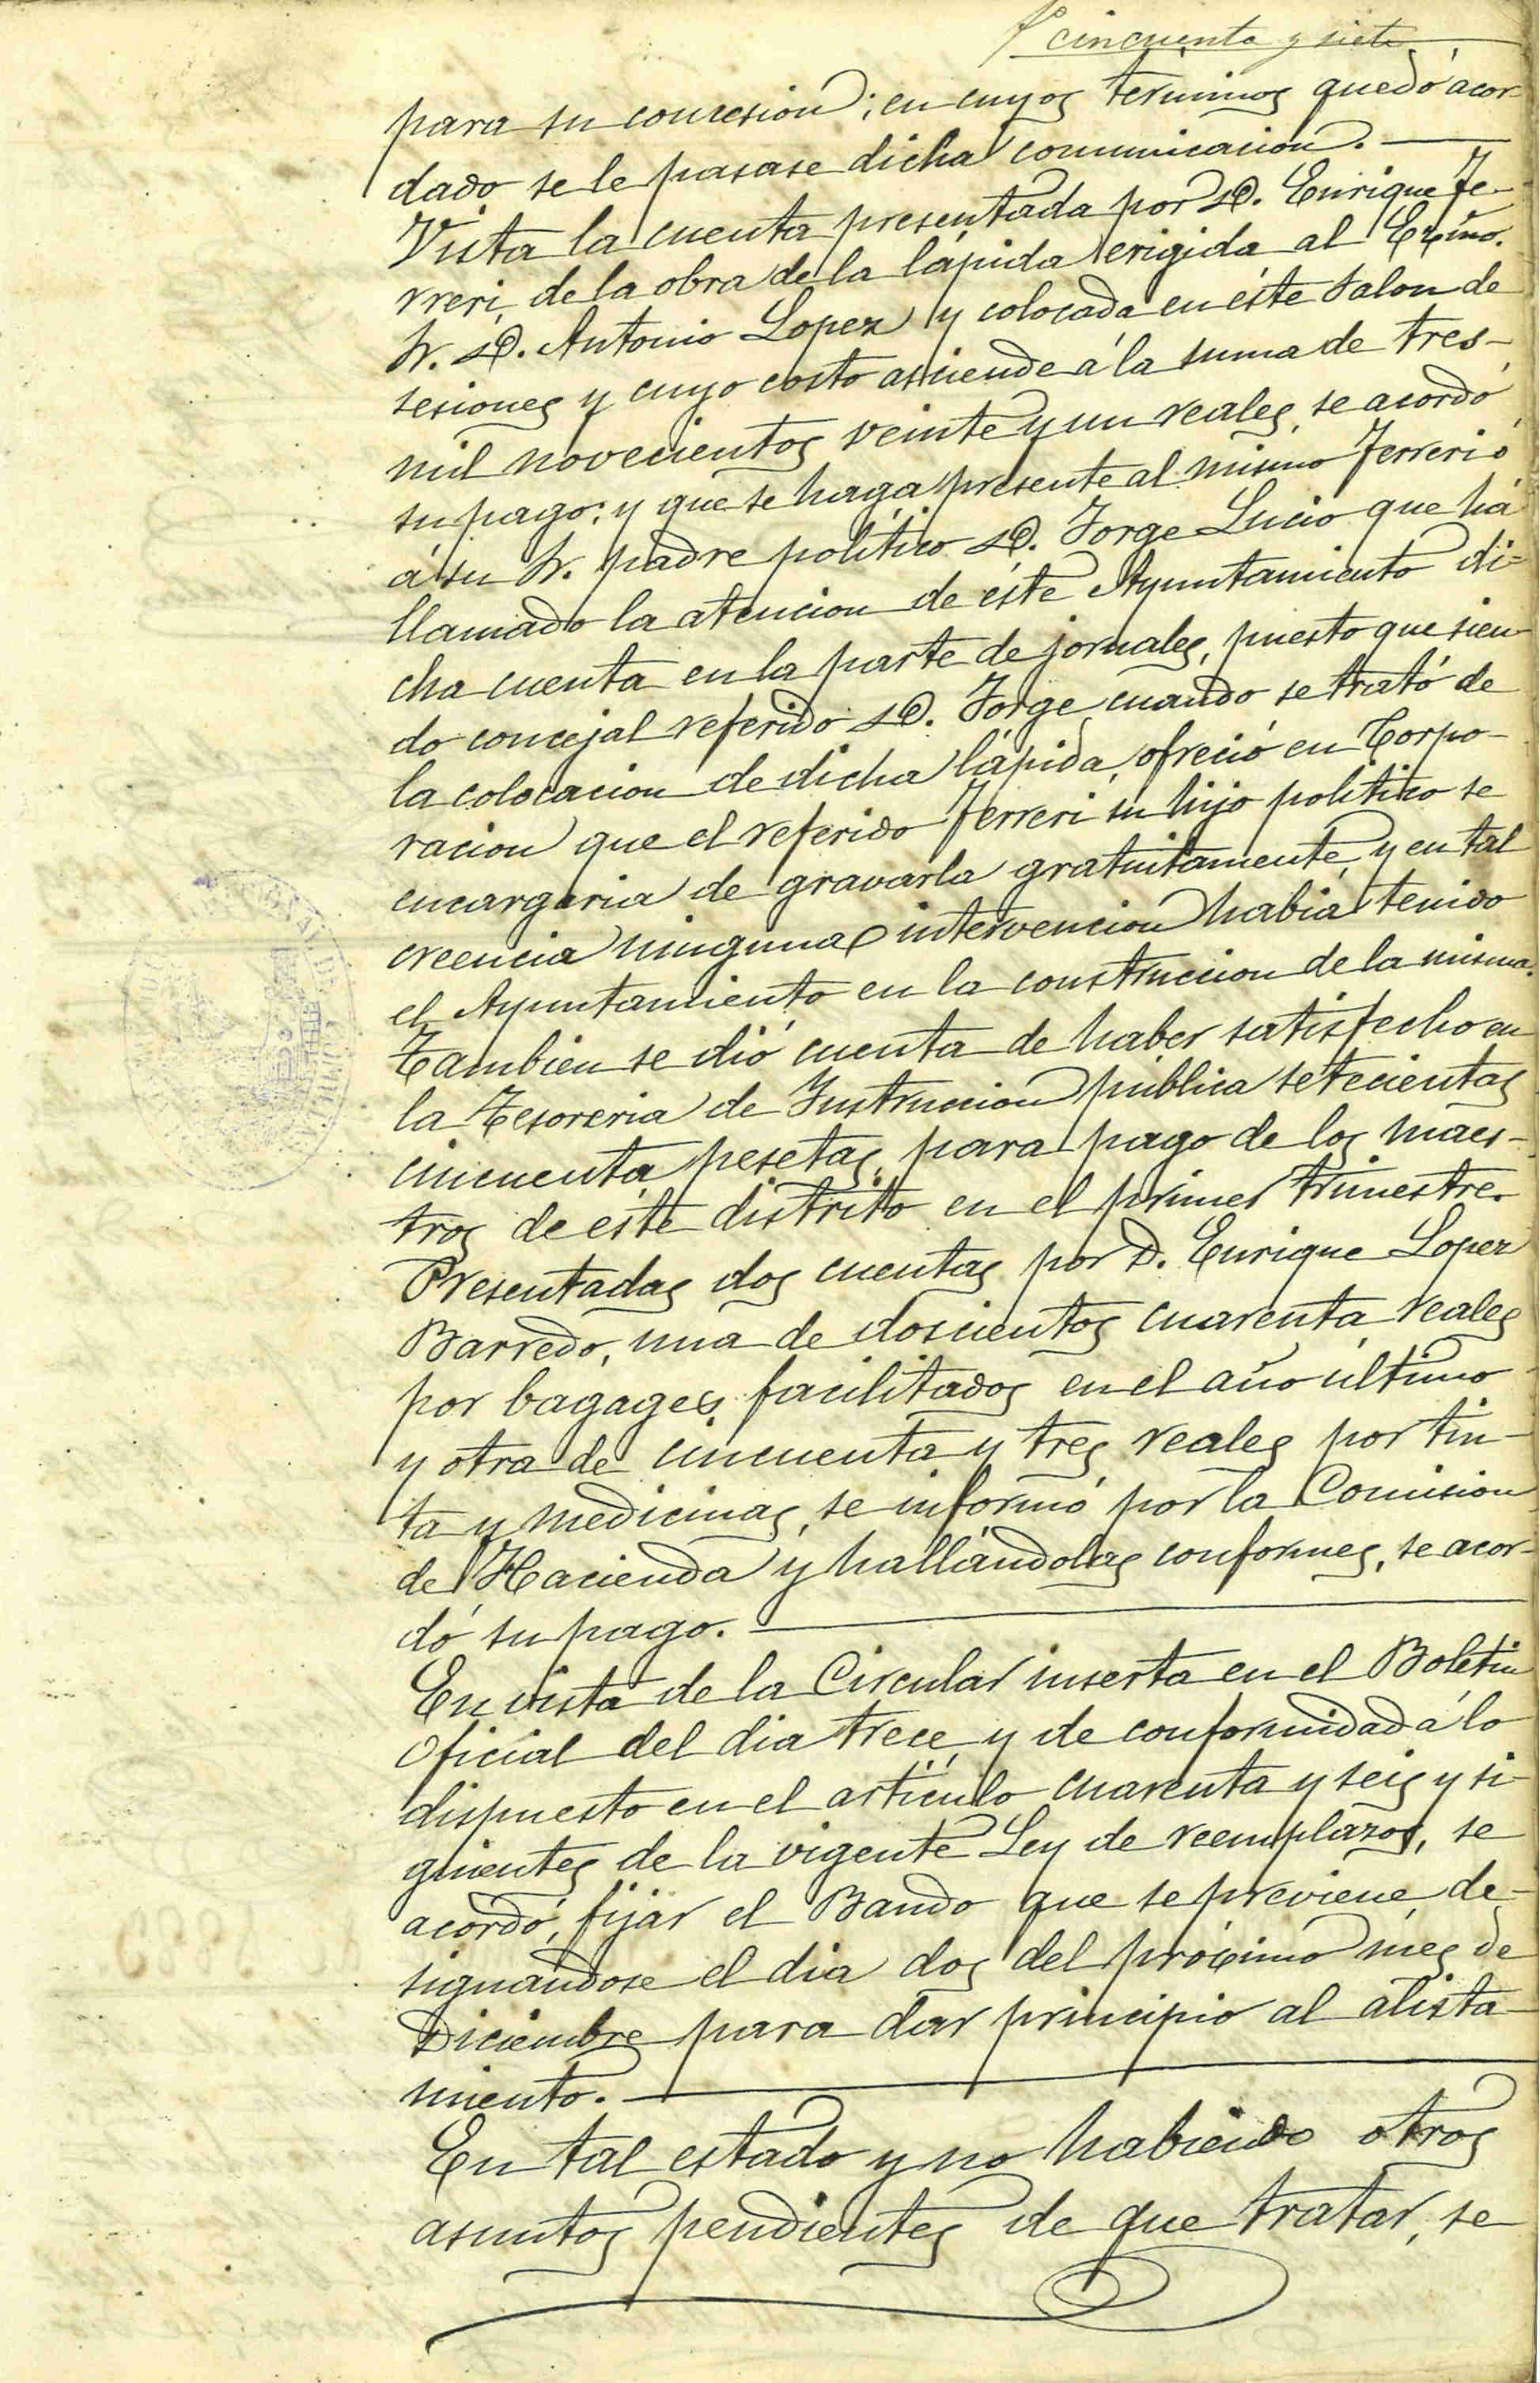 cincuenta y siete
para su concesion; en cuyos terminos quedó acor-
dado se le pasase dicha comunicacion.
Vista la cuenta presentada por D. Enrique Fe-
rreri, de la obra de la lápida erigida al Excmo.
Sr. D. Antonio Lopez y colocada en éste salon de
sesiones y cuyo costo asciende á la suma de tres-
mil novecientos veinte y un reales, se acordó
su pago; y que se haga presente al mismo Ferreri ó
á su Sr. padre político D. Jorge Lucio que há
llamado la atencion de éste Ayuntamiento di-
cha cuenta en la parte de jornales, puesto que sien-
do concejal referido D. Jorge cuando se trató de
la colocacion de dicha lápida, ofreció en Corpo-
racion que el referido Ferreri su hijo político se
encargaria de gravarla gratuitamente, y en tal
creencia ninguna intervencion habia tenido
el Ayuntamiento en la construccion de la misma.
Tambien se dió cuenta de haber satisfecho en
la Tesoreria de Instruccion pública setecientas
cincuenta pesetas, para pago de los maes-
tros de este distrito en el primer trimestre.
Presentadas dos cuentas por D. Enrique Lopez
Barredo, una de doscientos cuarenta reales
por bagages facilitados en el año último
y otra de cincuenta y tres reales por tin-
ta y medicinas, se informó por la Comision
de Hacienda y hallándolas conformes, se acor-
dó su pago.
En vista de la Circular inserta en el Boletin
Oficial del dia trece y de conformidad á lo
dispuesto en el artículo cuarenta y seis y si-
guientes de la vigente Ley de reemplazos, se
acordó, fijar el Bando que se previene, de-
signandose el dia dos del próximo mes de
Diciembre para dar principio al alista-
miento.
En tal estado y no habiendo otros
asuntos pendientes de que tratar, se